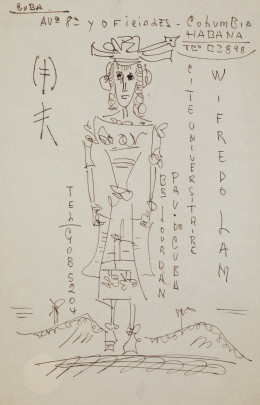 CUBA.
AVª 8ª y OFICIALES - COLUMBIA
HABANA
TNO B3898
WIFREDO LAM
CITE UNIVERSITAIRE
PAV. DO CUBA
Bd JOURDAN
TEL GOB 5204